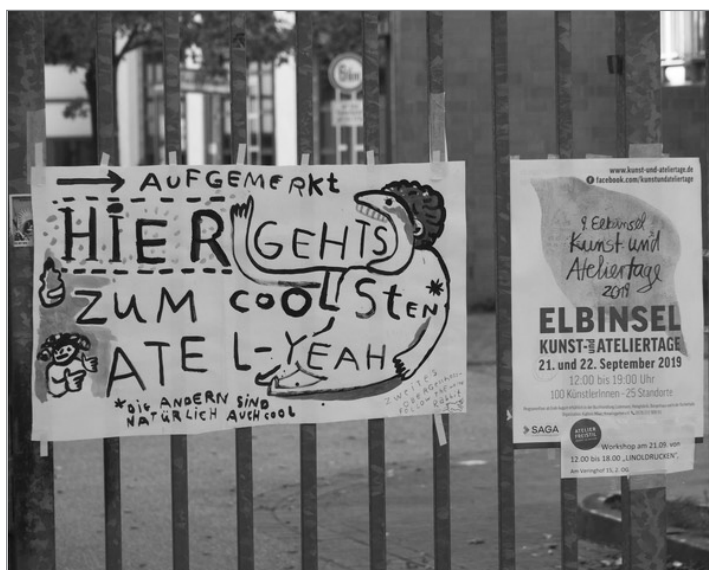 → AUFGEMERKt
HiER GEHTS
ZUM COOLSten*
ATEL-YEAH
*DIE ANDERN SIND
NATÜRLICH AUCH COOL
zweites
OBERGESCHOSS
FOLLOW THE
Rabbit
www.kunst-und-ateliertage.de
facebook.com/kunstundateliertage
9. Elbinsel
Kunst und
Ateliertage
2019
ELBINSEL
KUNST-und ATELIERTAGE
21. und 22. September 2019
12:00 bis 19:00 Uhr
100 KünstlerInnen - 25 Standorte
SAGA
ATELIER
FREISTIL
Workshop am 21.09. von
12.00 bis 18.00 „LINOLDRUCKEN",
Am Veringhof 15, 2. OG